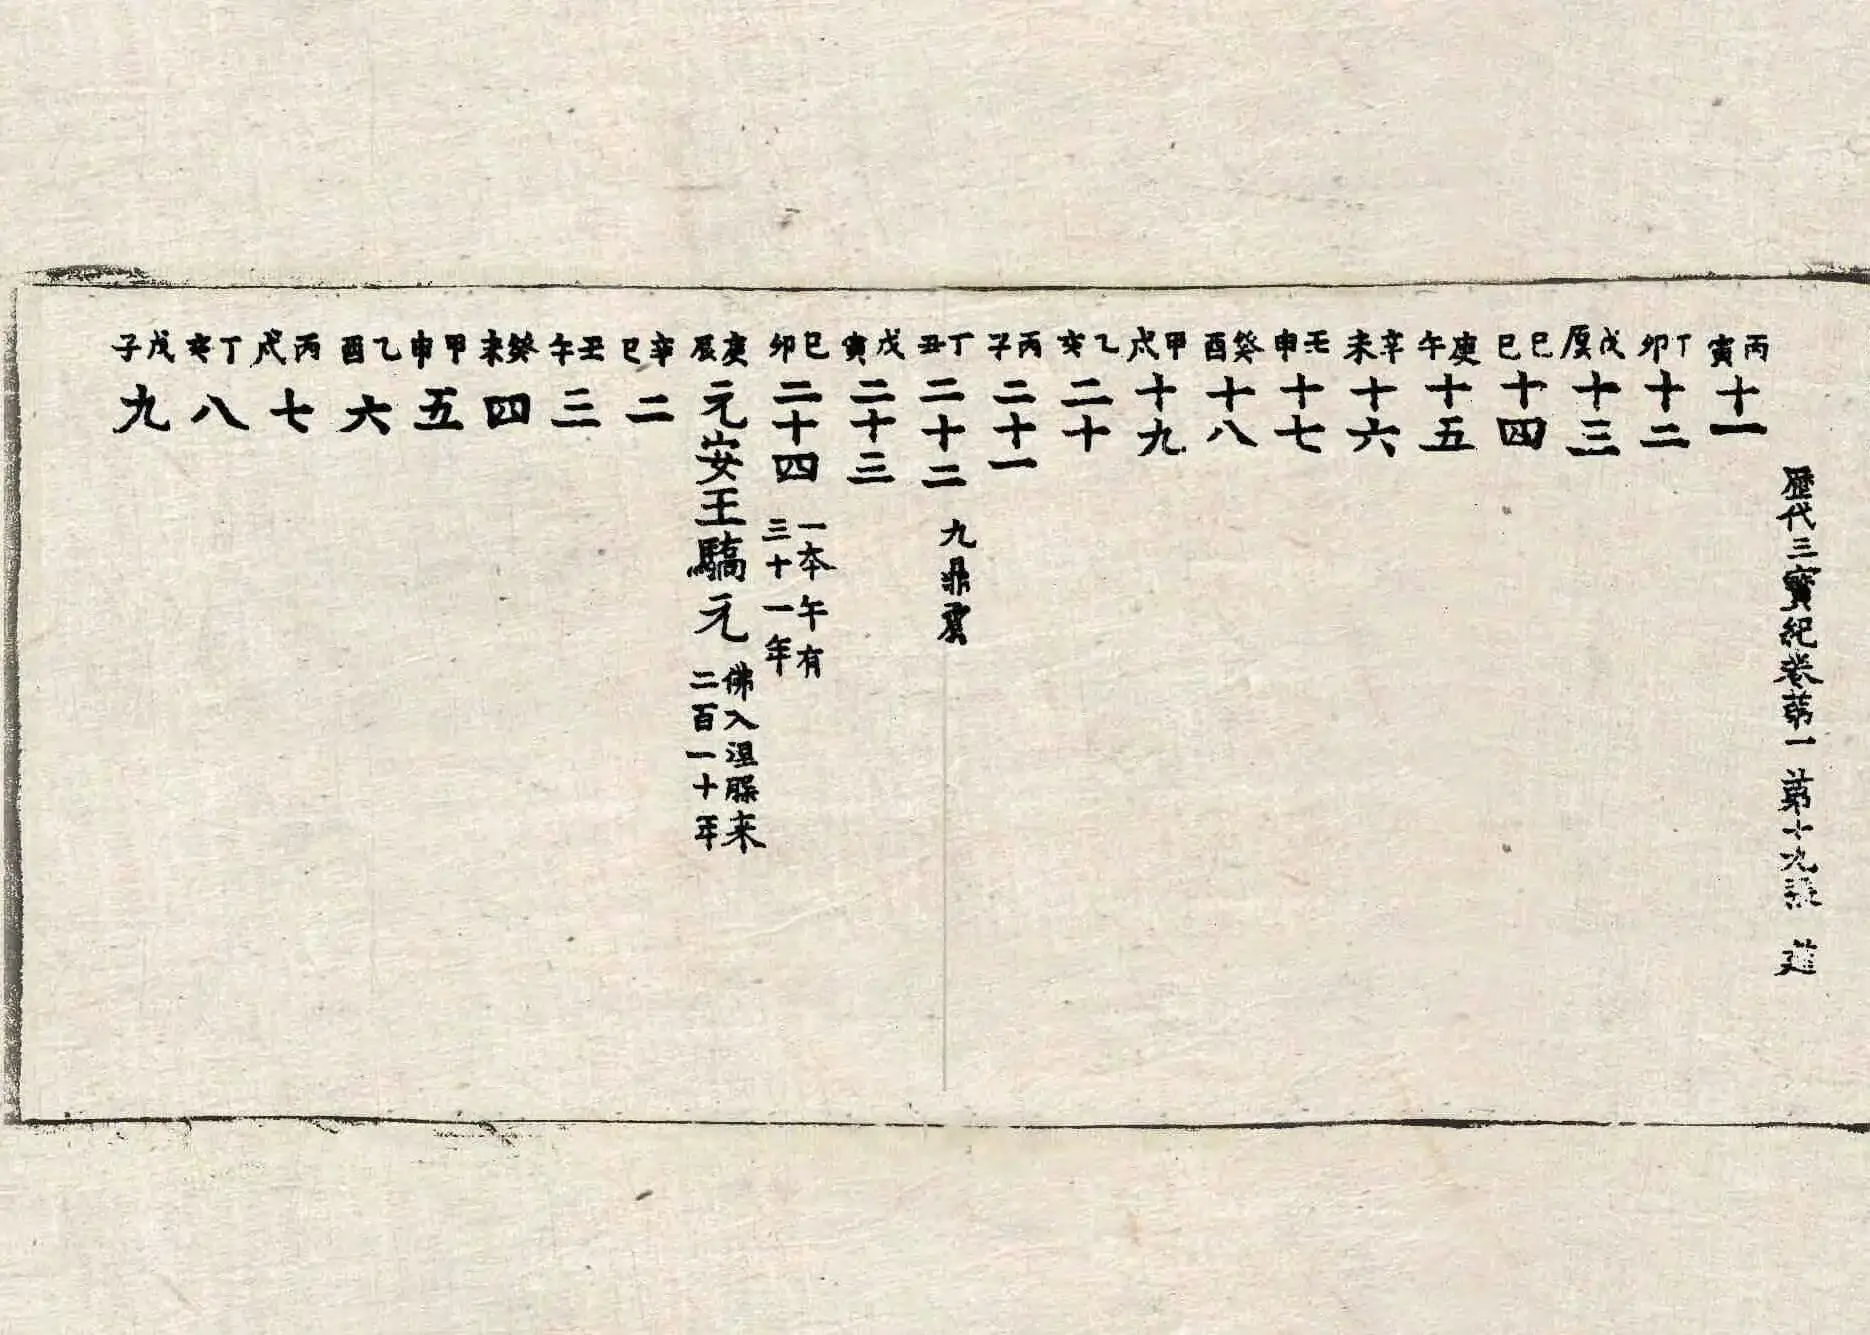 歷代三寶紀卷第一 第十九張
丙寅 十一
丁卯 十二
戊辰 十三
己巳 十四
庚午 十五
辛未 十六
壬申 十七
癸酉 十八
甲戌 十九
乙亥 二十
丙子 二十一
丁丑 二十二 九鼎震
戊寅 二十三
己卯 二十四 一本午有三十一年
庚辰 元 安王驕元 佛入涅槃來二百一十年
辛巳 二
丑午 三
癸未 四
甲申 五
乙酉 六
丙戌 七
丁亥 八
戊子 九